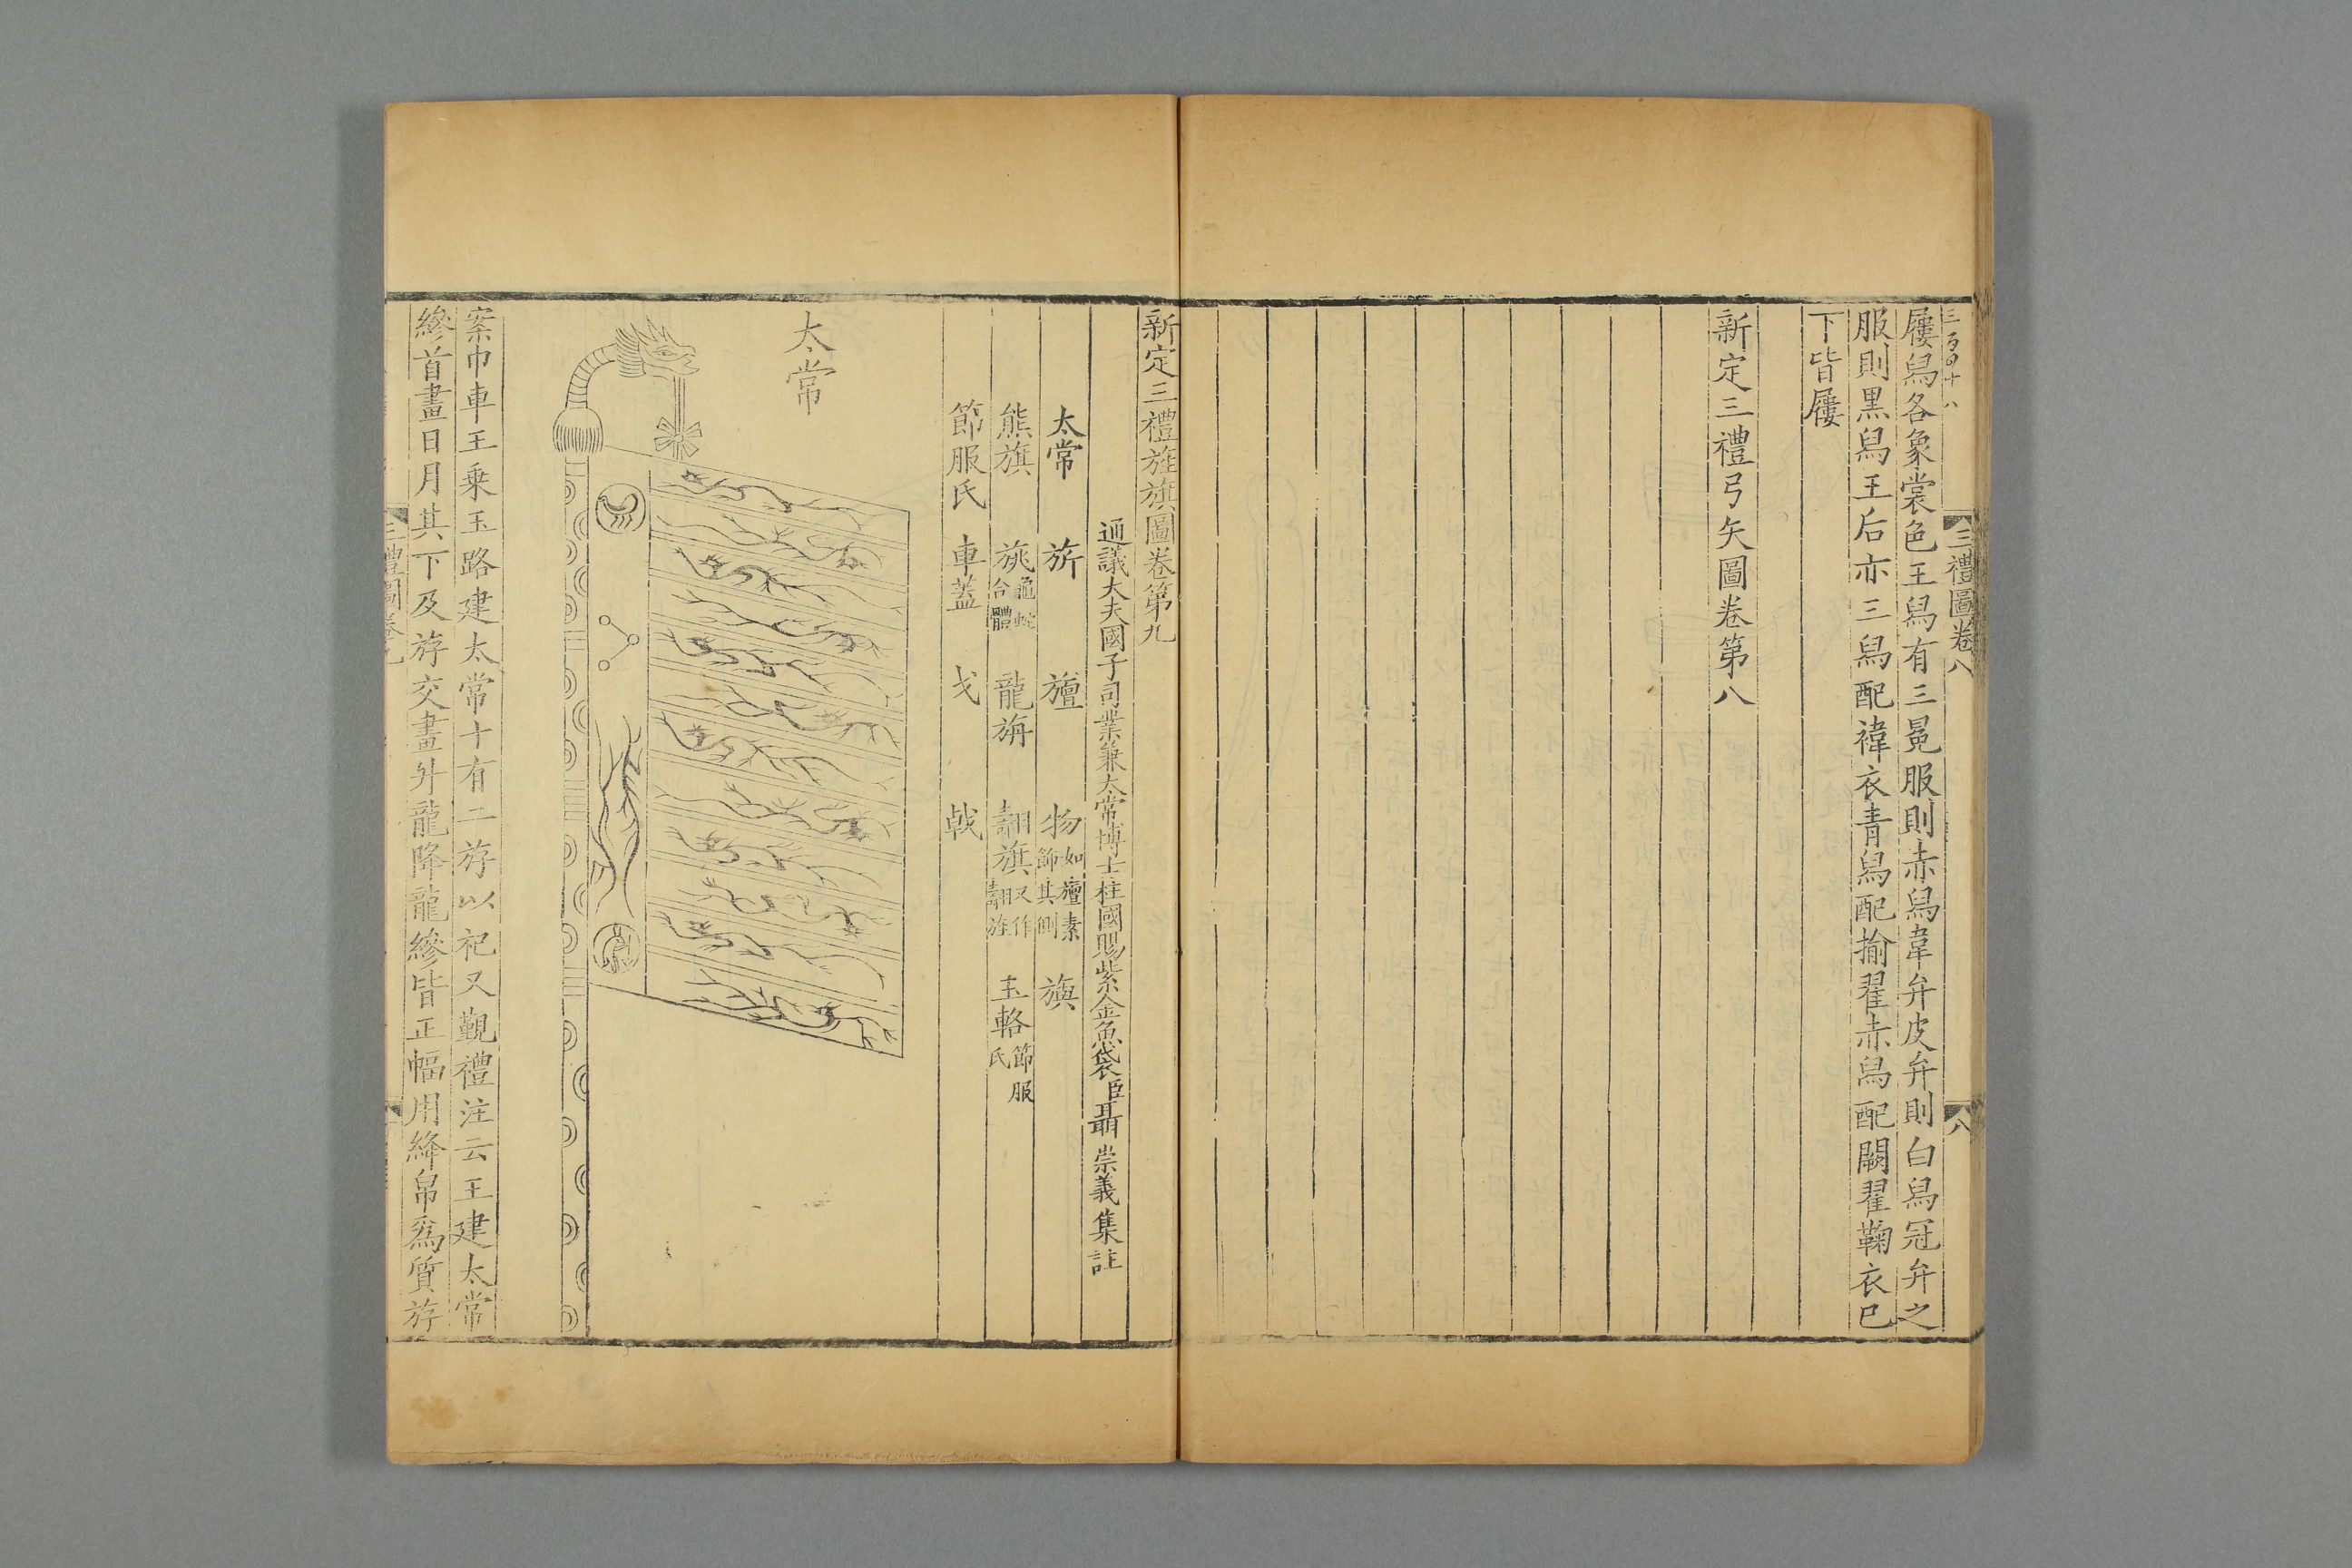 三百四十八
三禮圖卷八
八
屨舄各象裳色王舄有三冕服則赤舄韋弁皮弁則白舄冠弁之
服則黒舄王后亦三舄配褘衣青舄配揄翟赤舄配闕翟鞠衣巳
下皆屨
新定三禮弓矢圖卷第八
新定三禮旌旗圖卷第九
通議大夫國子司業兼太常博士柱國賜紫金魚袋臣聶崇義集註
太常 旂 旜 物如旜素飾其側 旟
熊旗 旐龜蛇合體 龍旃 翿旗又作翿旌 玉輅節服氏
節服氏 車蓋 戈 戟
太常
案巾車王乗玉路建太常十有二斿以祀又覲禮注云王建太常
縿首畫日月其下及斿交畫升龍降龍縿皆正幅用絳帛爲質斿
三禮圖卷九